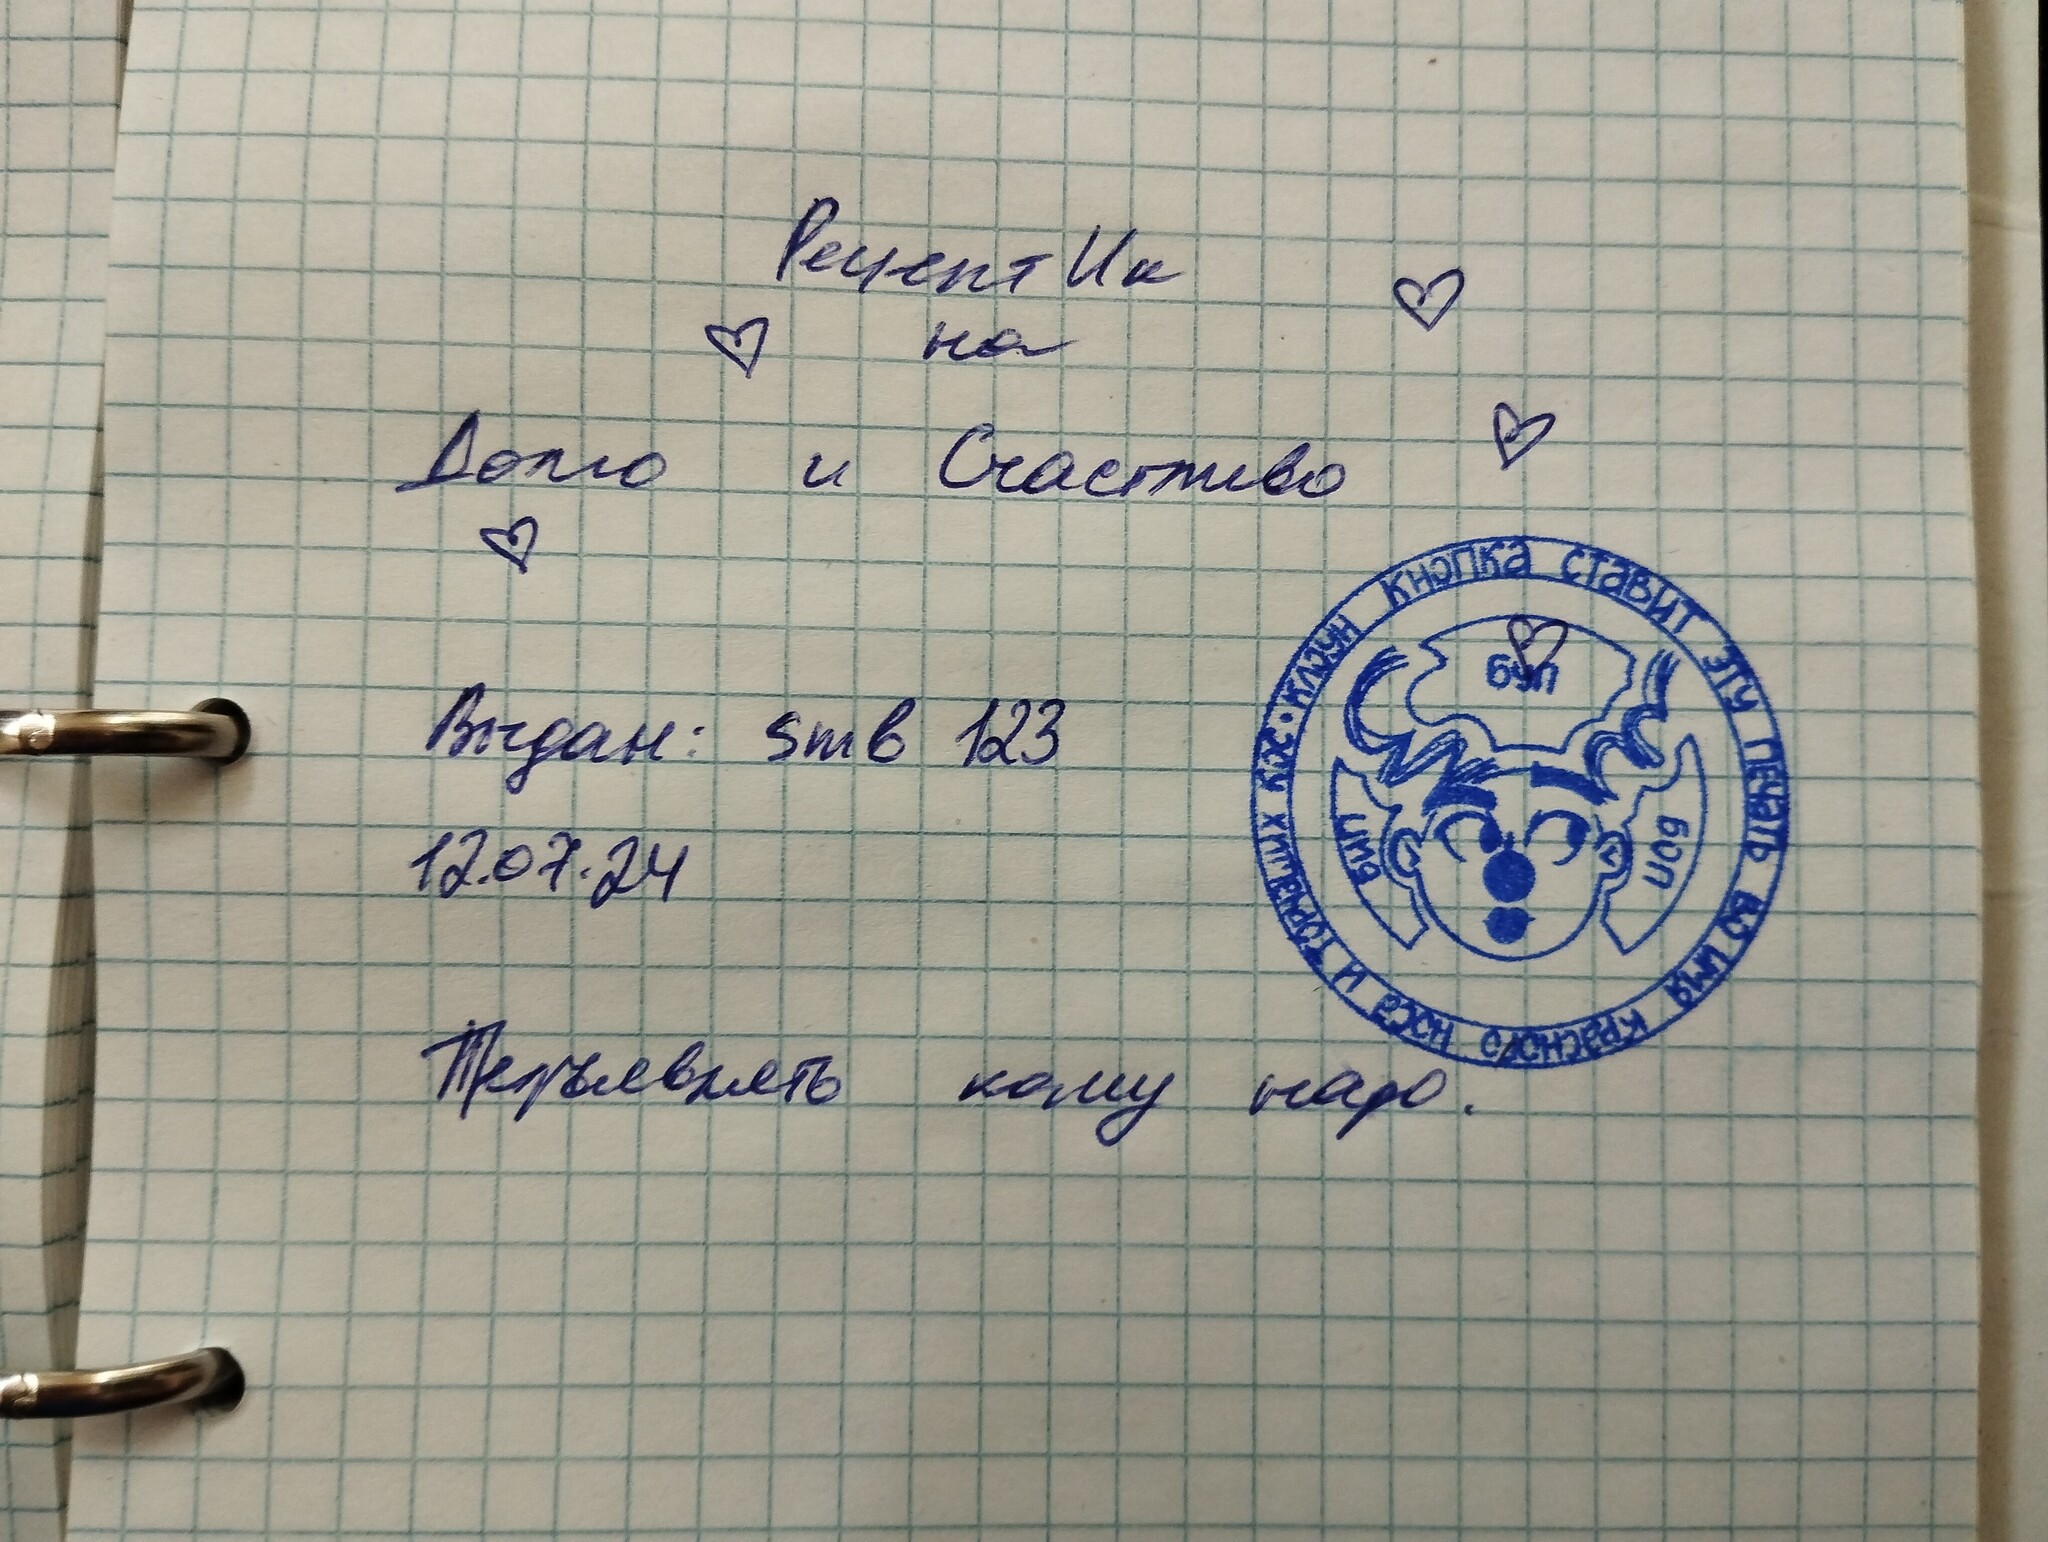 РецептИк
на
Долго и Счастливо
Выдан: smb 123
12.07.24
кому надо.
КЛОУН КНОПКА СТАВИТ ЭТУ ПЕЧАТЬ ВО ИМЯ КРАСНОГО НОСА И ТОРЧАЩИХ КОС •
БУП
БИП